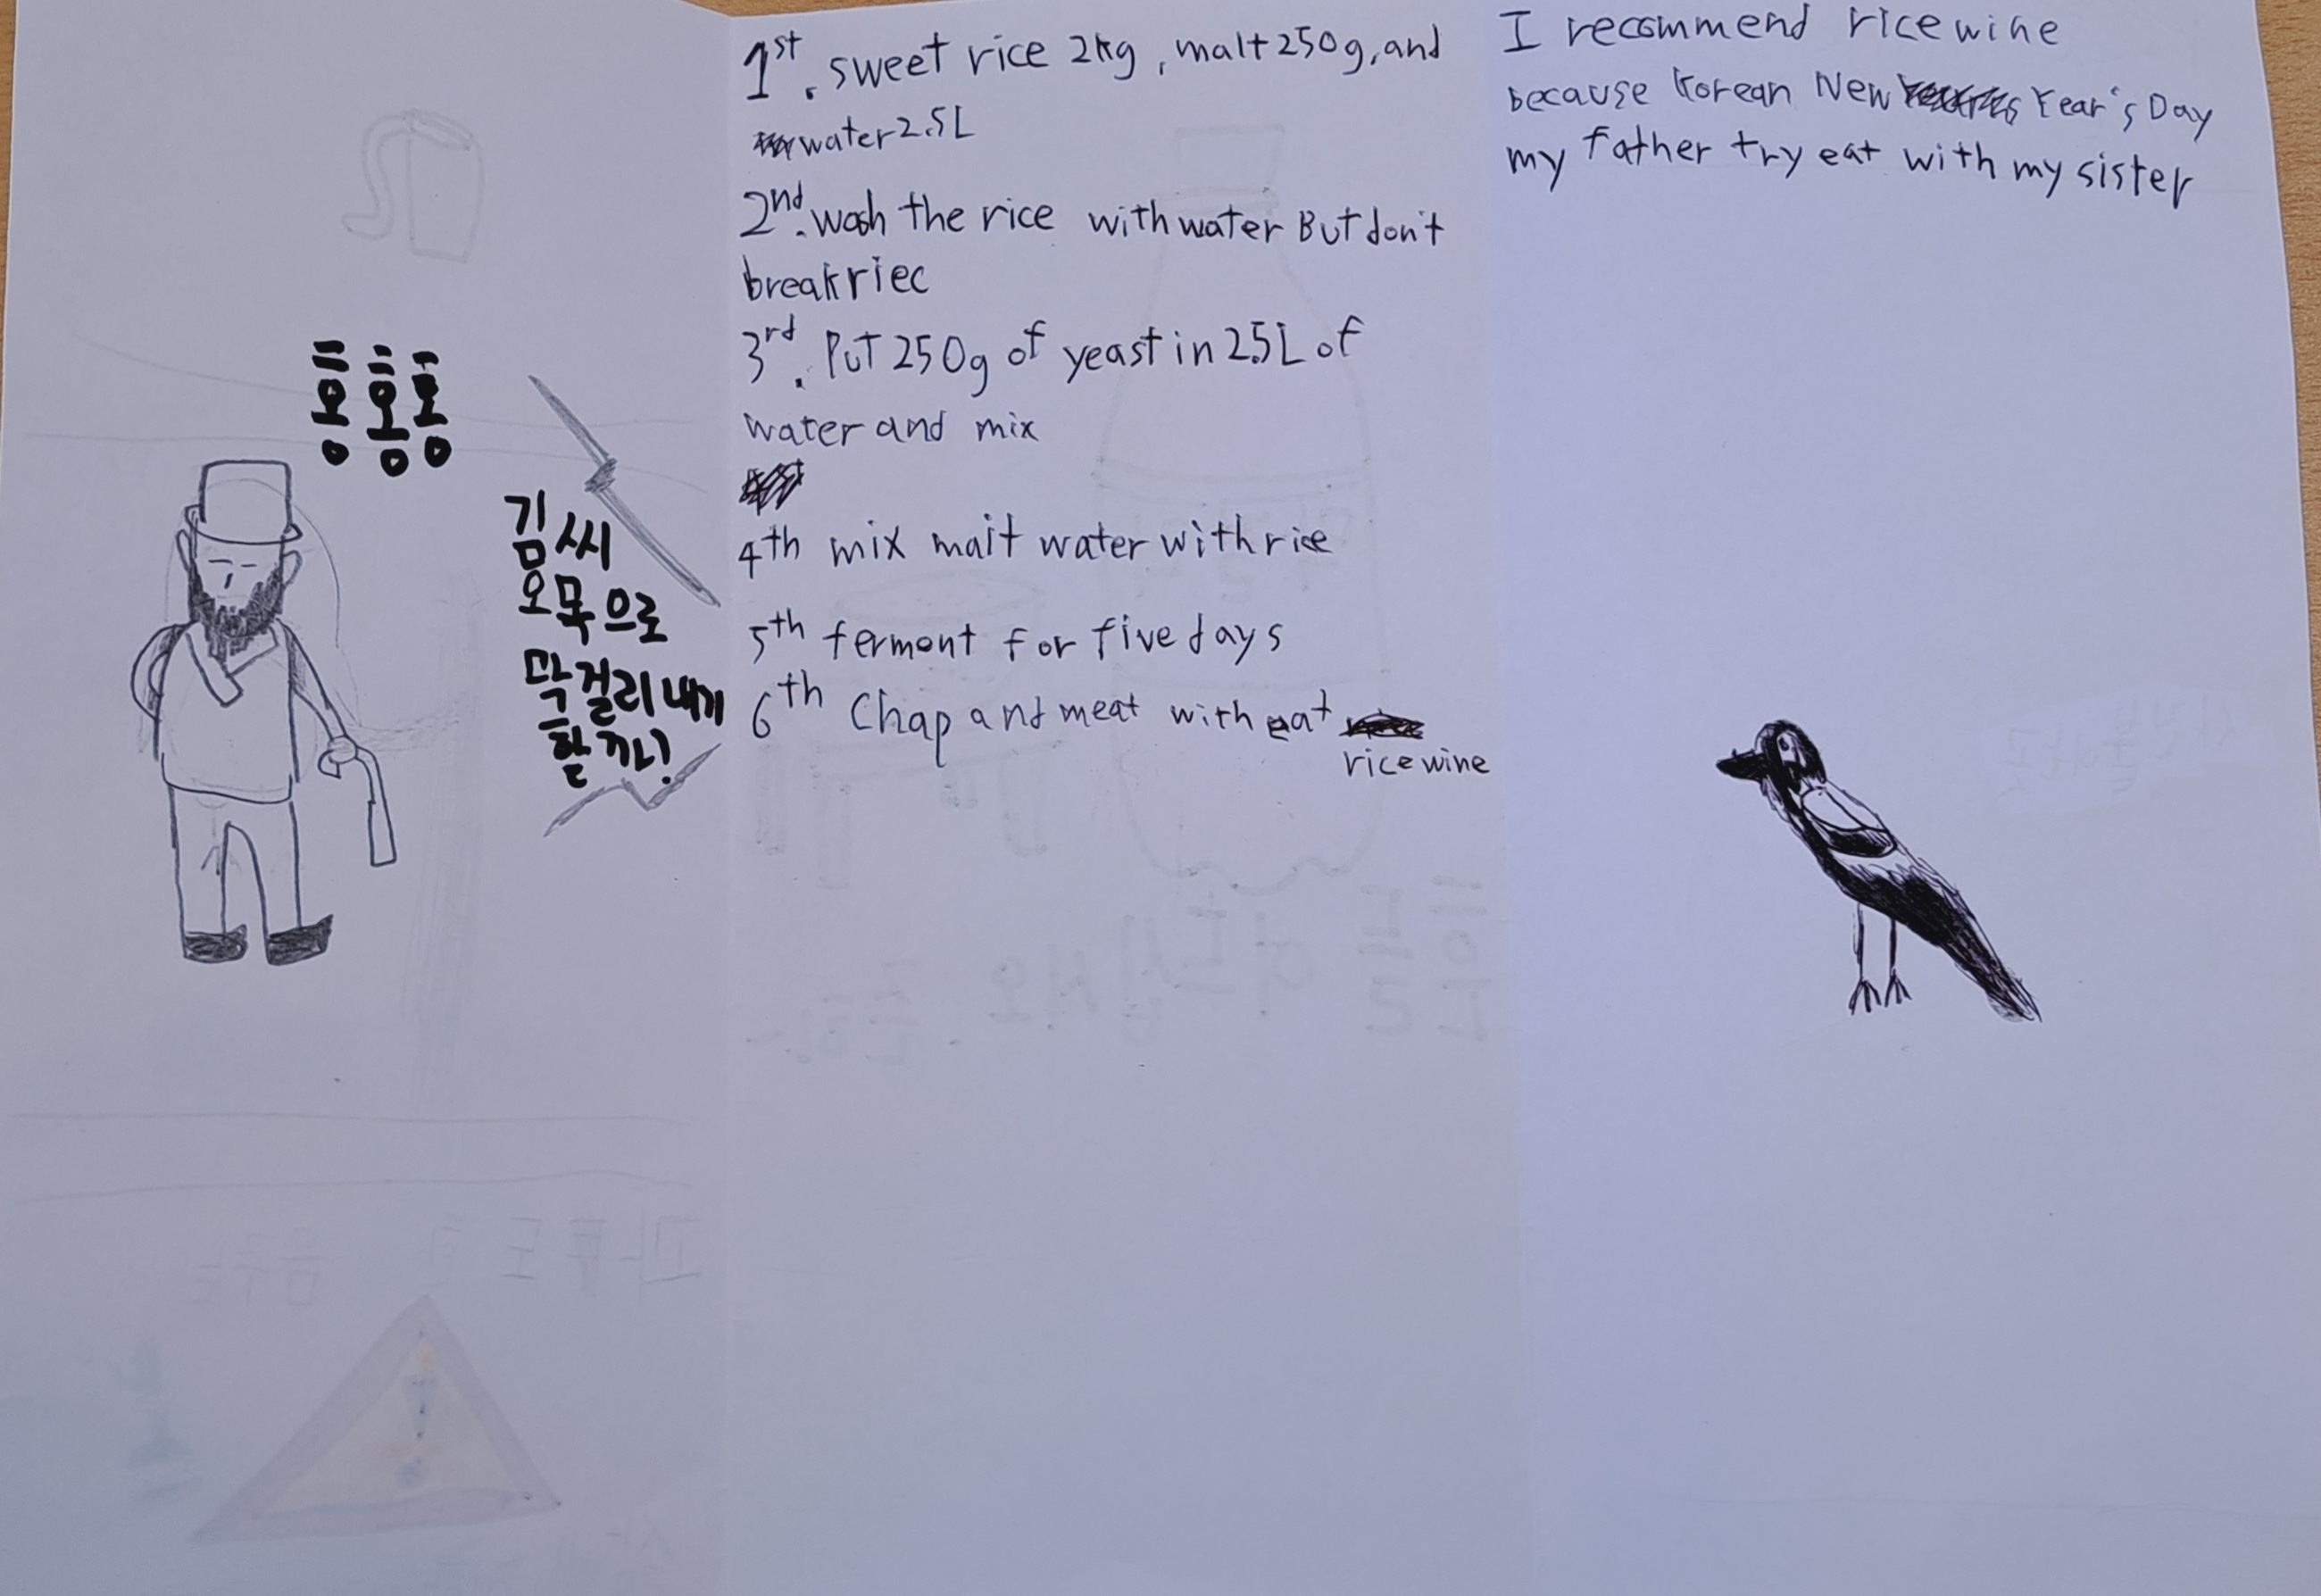 홍홍홍
김씨
오목으로
막걸리 내기
할까?
1st. sweet rice 2kg, malt 250g, and
water 2.5L
2nd. wash the rice with water But don't
break riec
3rd. Put 250g of yeast in 2.5L of
water and mix
4th mix malt water with rice
5th ferment for five days
6th Chap and meat with eat
rice wine
I recommend rice wine
because Korean New Year's Day
my father try eat with my sister